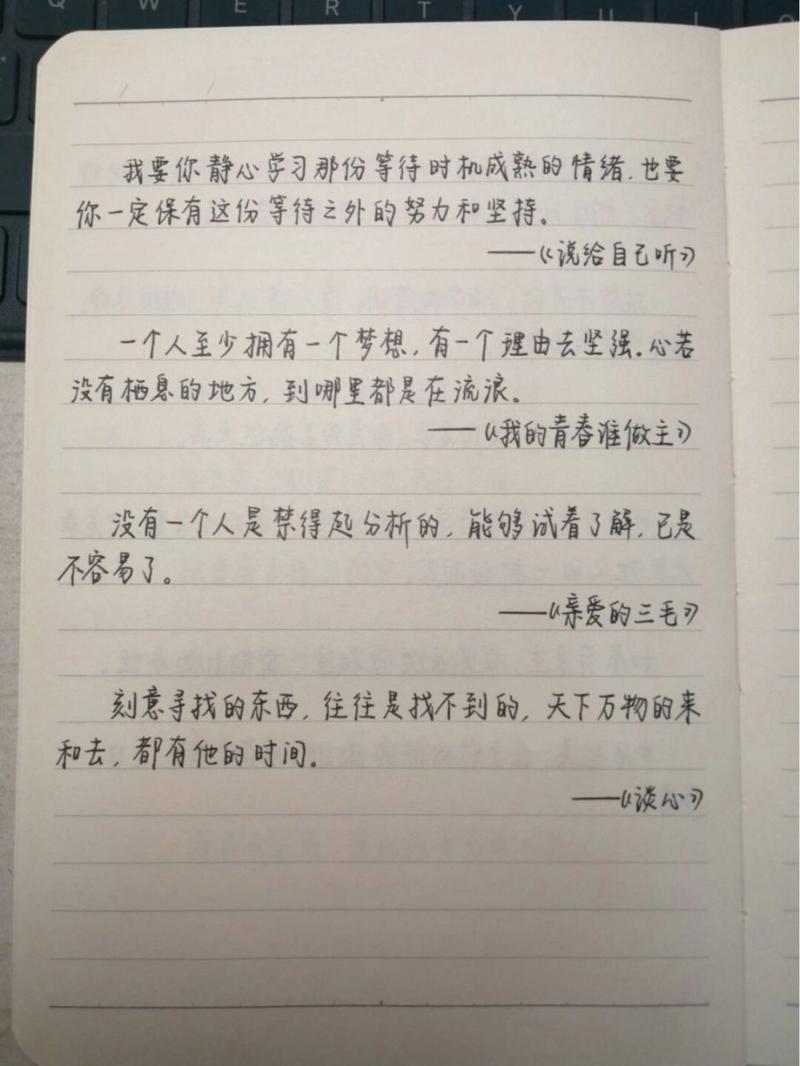 Q W E R T Y U I O
我要你静心学习那份等待时机成熟的情绪,也要
你一定保有这份等待之外的努力和坚持。
——《说给自己听》
一个人至少拥有一个梦想,有一个理由去坚强。心若
没有栖息的地方,到哪里都是在流浪。
——《我的青春谁做主》
没有一个人是禁得起分析的,能够试着了解,已是
不容易了。
——《亲爱的三毛》
刻意寻找的东西,往往是找不到的,天下万物的来
和去,都有他的时间。
——《谈心》